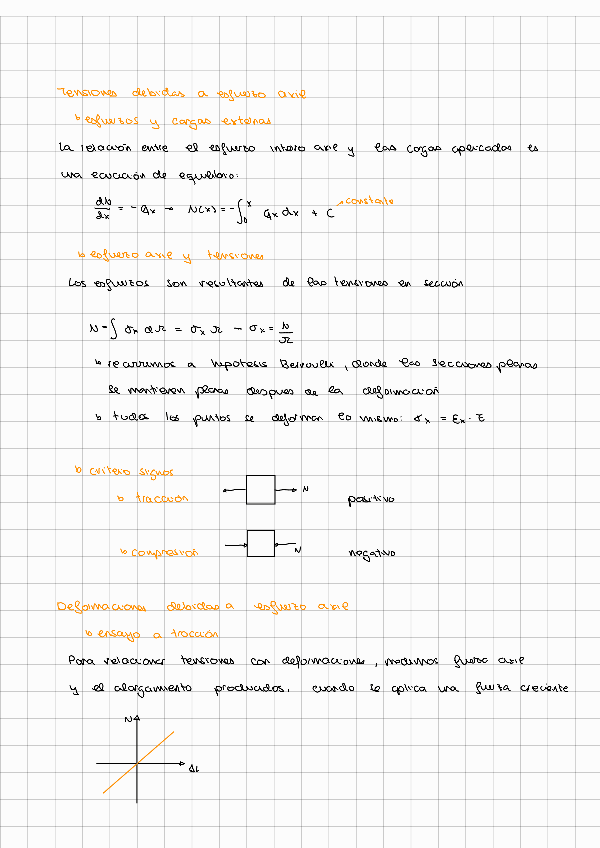 Tensiones debidas a esfuerzo axil
↳ esfuerzos y cargas externas
La relación entre el esfuerzo interno axil y las cargas aplicadas es
una ecuación de equilibrio:
dN/dx = - qx → N(x) = - ∫₀ˣ qx dx + C ↗ constante
↳ esfuerzo axil y tensiones
Los esfuerzos son resultantes de las tensiones en sección
N = ∫ σx dΩ = σx Ω → σx = N/Ω
↳ recurrimos a hipótesis Bernoulli, donde las secciones planas
se mantienen planas despues de la deformación
↳ todos los puntos se deforman lo mismo: σx = εx · E
↳ criterio signos
↳ tracción N positivo
↳ compresión N negativo
Deformaciones debidas a esfuerzo axil
↳ ensayo a tracción
Para relacionar tensiones con deformaciones, medimos fuerza axil
y el alargamiento producidos, cuando se aplica una fuerza creciente
N
ΔL